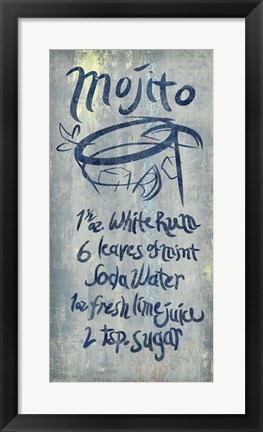 Mojito
1½ oz. White Rum
6 leaves of mint
Soda Water
1oz fresh lime juice
2 tsp. sugar